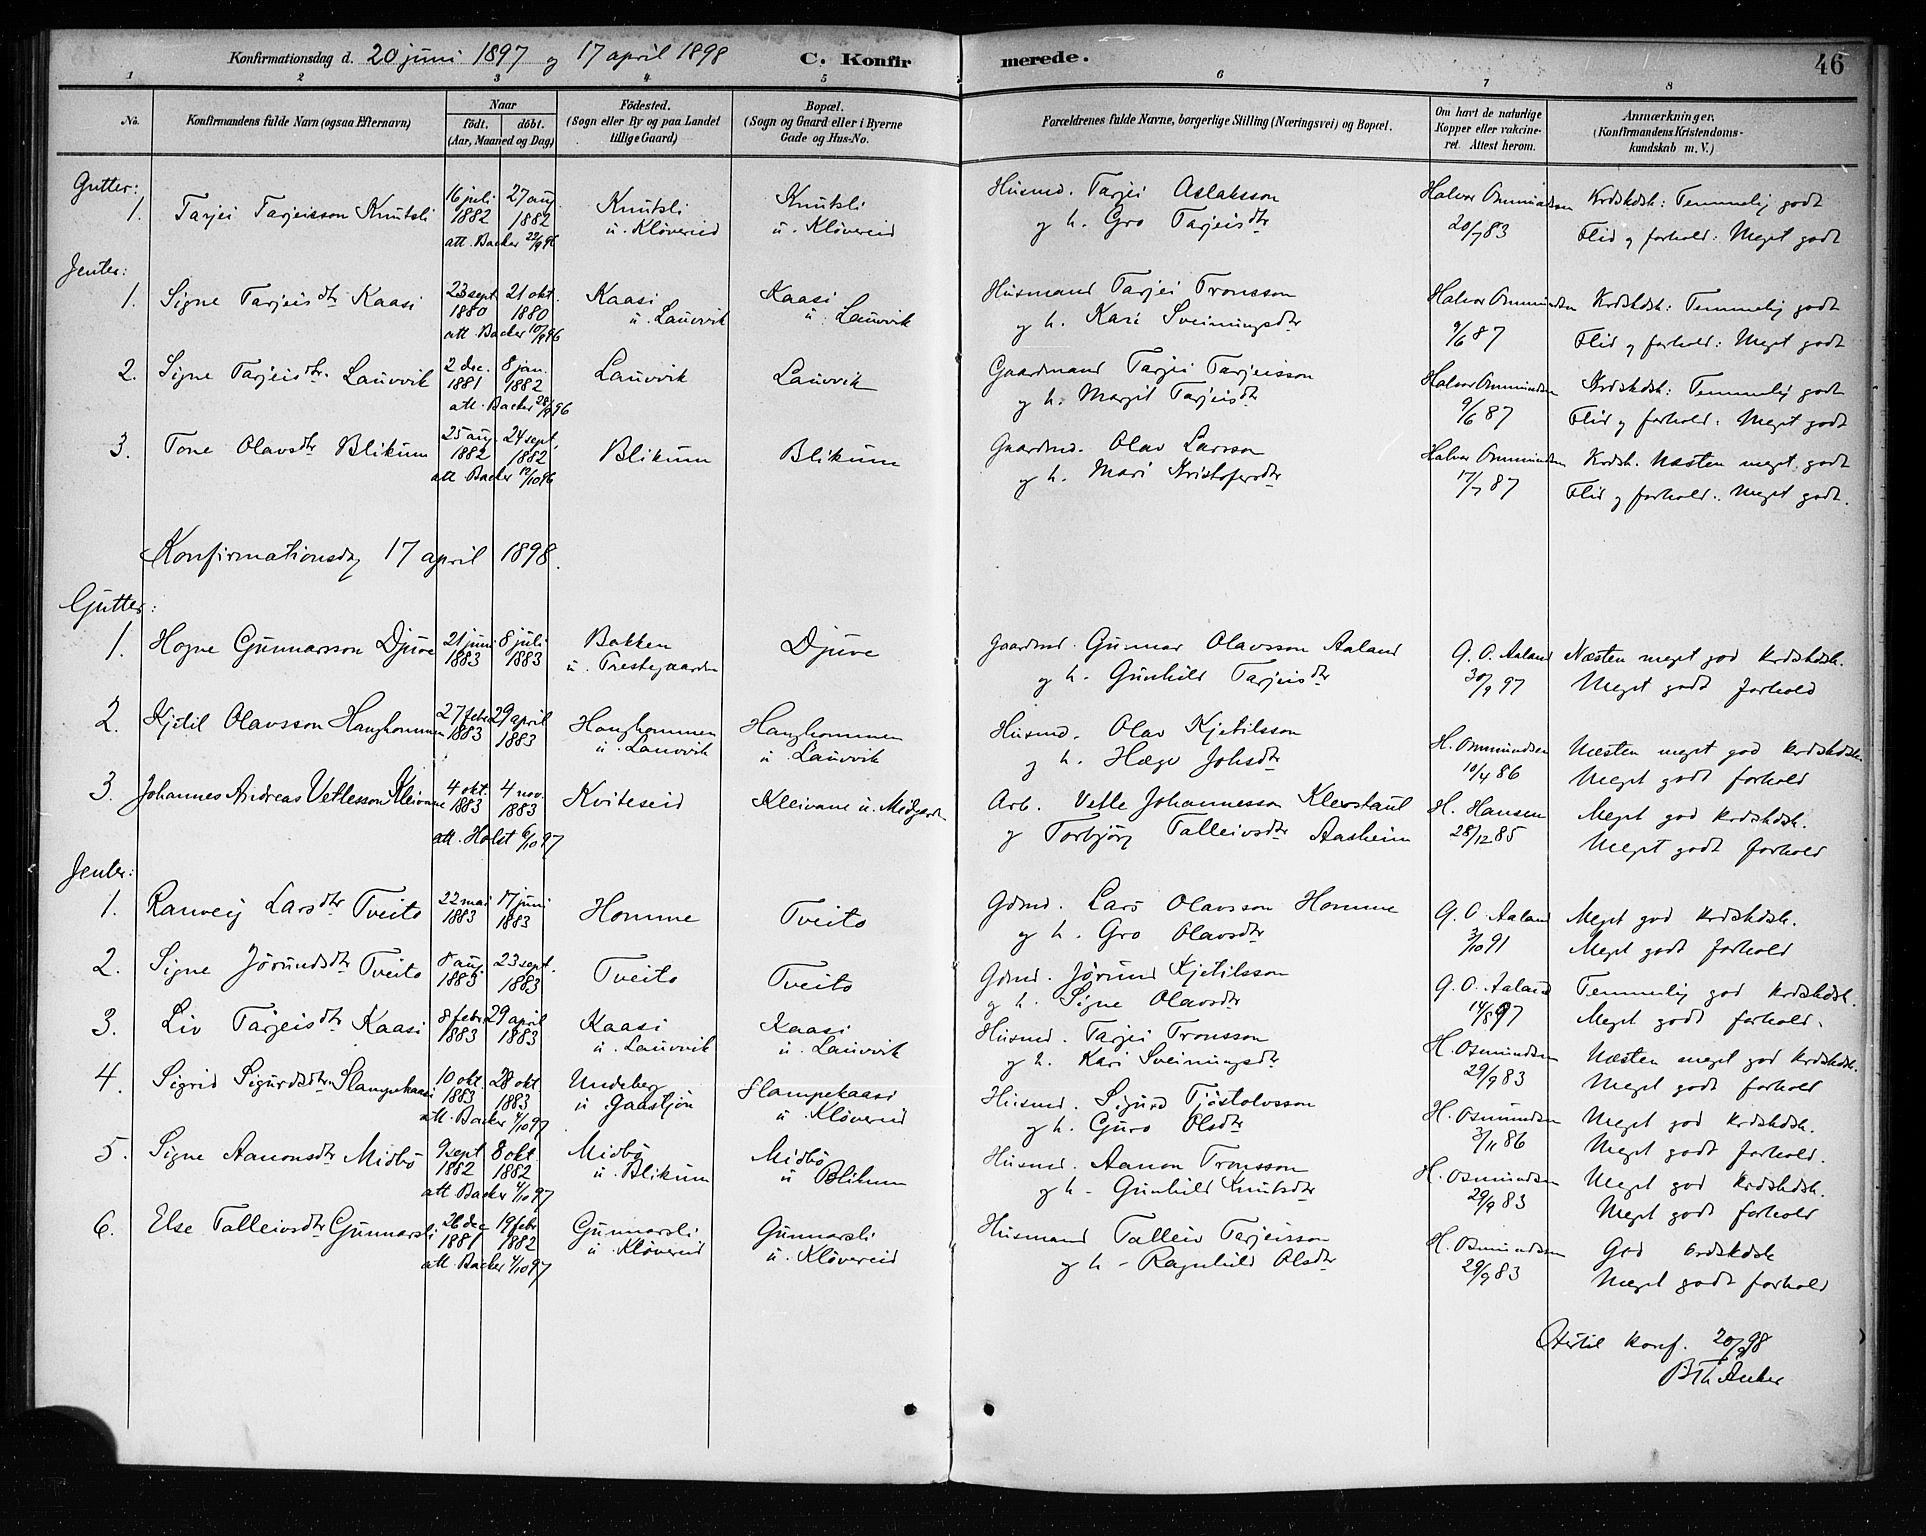 Konfirmationsdag d. 20 juni 1897 og 17 april 1898 C. Konfirmerede. 46
1 2 3 4 5 6 7 8
No. Konfirmandens fulde Navn (ogsaa Efternavn) Naar født. døbt. (Aar, Maaned og Dag) Fødested. (Sogn eller By og paa Landet tillige Gaard) Bopæl. (Sogn og Gaard eller i Byerne Gade og Hus-No. Forældrenes fulde Navne, borgerlige Stilling (Næringsvei) og Bopæl. Om havt de naturlige Kopper eller vakcineret. Attest herom. Anmærkninger. (Konfirmandens Kristendomskundskab m. V.)
Gutter:
1. Tarjei Tarjeisson Knutsli 16 juli 1882 27 aug 1882 Knutsli u. Kløvereid Knutsli u. Kløvereid Husmd. Tarjei Aslaksson Halvor Ommundsen Krdskdsk: Temmelig godt
att. Backer 22/9 96 og h. Gro Tarjeisdtr 20/7 83 Flid og forhold: Meget godt
Jenter:
1. Signe Tarjeisdtr Kaasi 23 sept. 1880 21 okt. 1880 Kaasi u. Lauvvik Kaasi u. Lauvvik Husmand Tarjei Tronsson Halvor Ommundsen Krdskdsk: Temmelig godt
att. Backer 10/9 96 og h. Kari Sveinungsdtr 9/6 87 Flid og forhold: Meget godt
2. Signe Tarjeisdtr. Lauvvik 2 dec. 1881 8 jan. 1882 Lauvvik Lauvvik Gaardmand Tarjei Tarjeisson Halvor Ommundsen Krdskdsk: Temmelig godt
att. Backer 28/9 96 og h. Margit Tarjeisdtr 9/6 87 Flid og forhold: Meget godt
3. Tone Olavsdtr Blikum 25 aug. 1882 24 sept. 1882 Blikum Blikum Gaardmd. Olav Larsson Halvor Ommundsen Krdsk. Næsten meget godt
att Backer 12/10 96 og h. Mari Kristofersdtr 17/7 87 Flid og forhold: Meget godt.
Konfirmationsdag 17 april 1898.
Gutter:
1. Hogne Gunnarsson Djuve 21 juni 1883 8 juli 1883 Bakken u. Prestegaarden Djuve Gaardmd. Gunnar Olavsson Aaland G. O. Aaland Næsten meget god krdskdsk.
og h. Gunhild Tarjeisdtr 30/9 97 Meget godt forhold
2. Kjetil Olavsson Haughommen 27 febr 1883 29 april 1883 Haughommen u. Lauvvik Haughommen u. Lauvvik Husmd. Olav Kjetilsson H. Ommundsen Næsten meget god krdskdsk.
og h. Hæge Johsdtr 10/4 86 Meget godt forhold
3. Johannes Andreas Vetlesson Kleivane 4 okt. 1883 4 nov. 1883 Kviteseid Kleivane u. Midgarden Arb. Vetle Johannesson Klevstaul H. Hansen Meget god krdskdsk.
att. Holst 6/10 97 og Torbjørg Talleivsdtr Aasheim 28/12 85 Meget godt forhold
Jenter:
1. Ranveig Larsdtr Tveito 22 mai 1883 17 juni 1883 Homme Tveito Gdmd. Lars Olavsson Homme G. O. Aaland Meget god krdskdsk.
og h. Gro Olavsdtr 3/10 91 Meget godt forhold
2. Signe Jørundsdtr Tveito 8 aug. 1883 23 sept. 1883 Tveito Tveito Gdmd. Jørund Kjetilsson G. O. Aaland Temmelig god krdskdsk.
og h. Signe Olavsdtr 14/8 97 Meget godt forhold.
3. Liv Tarjeisdtr Kaasi 8 febr 1883 29 april 1883 Kaasi u. Lauvvik Kaasi u. Lauvvik Husmd. Tarjei Tronsson H. Osmundsen Næsten meget god krdskdsk.
og h. Kari Sveinungsdtr 29/9 83 Meget godt forhold
4. Sigrid Sigurdsdtr Slampekaasi 10 okt. 1883 28 okt 1883 Undeberg u. Gaastjøn Slampekaasi u. Kløvereid Husmd. Sigurd Tjøstolvsson H. Osmundsen Meget god krdskdsk.
att. Backer 4/10 97 og h. Guro Olsdtr 3/11 86 Meget godt forhold.
5. Signe Aanonsdtr Midbø 9 sept 1882 8 okt. 1882 Midbø u. Blikum Midbø u Blikum Husmd. Aanon Tronsson H. Osmundsen Meget god krdskdsk.
att. Backer 4/10 97 og h. Gunhild Knutsdtr 29/9 83 Meget godt forhold
6. Else Talleivsdtr Gunnarsli 26 dec 1881 19 febr 1882 Gunnarsli u. Kløvereid Gunnarsli u. Kløvereid Husmand Talleiv Tarjeisson H. Osmundsen God krdskdsk
att. Backer 4/10 97 og h. Ragnhild Olsdtr 29/9 83 Meget godt forhold
Hertil konf. 20/9 98
B Th Anker